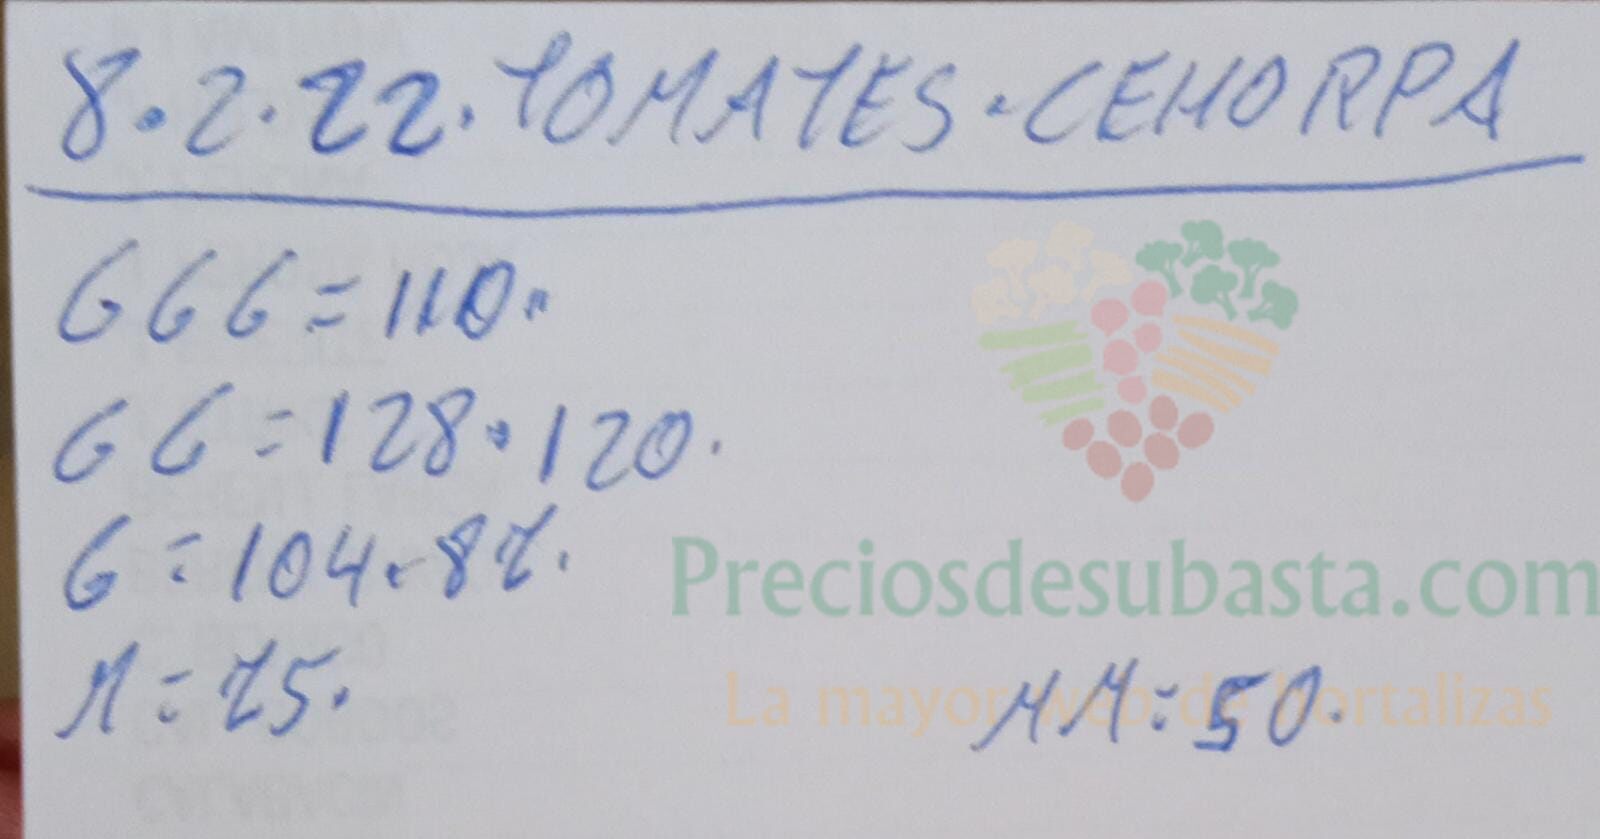 8.2.22.TOMATES.CEHORPA
GGG=110.
GG=128.120.
G=104.87.
Preciosdesubasta.com
La mayor web de hortalizas
M=75.
MM=50.